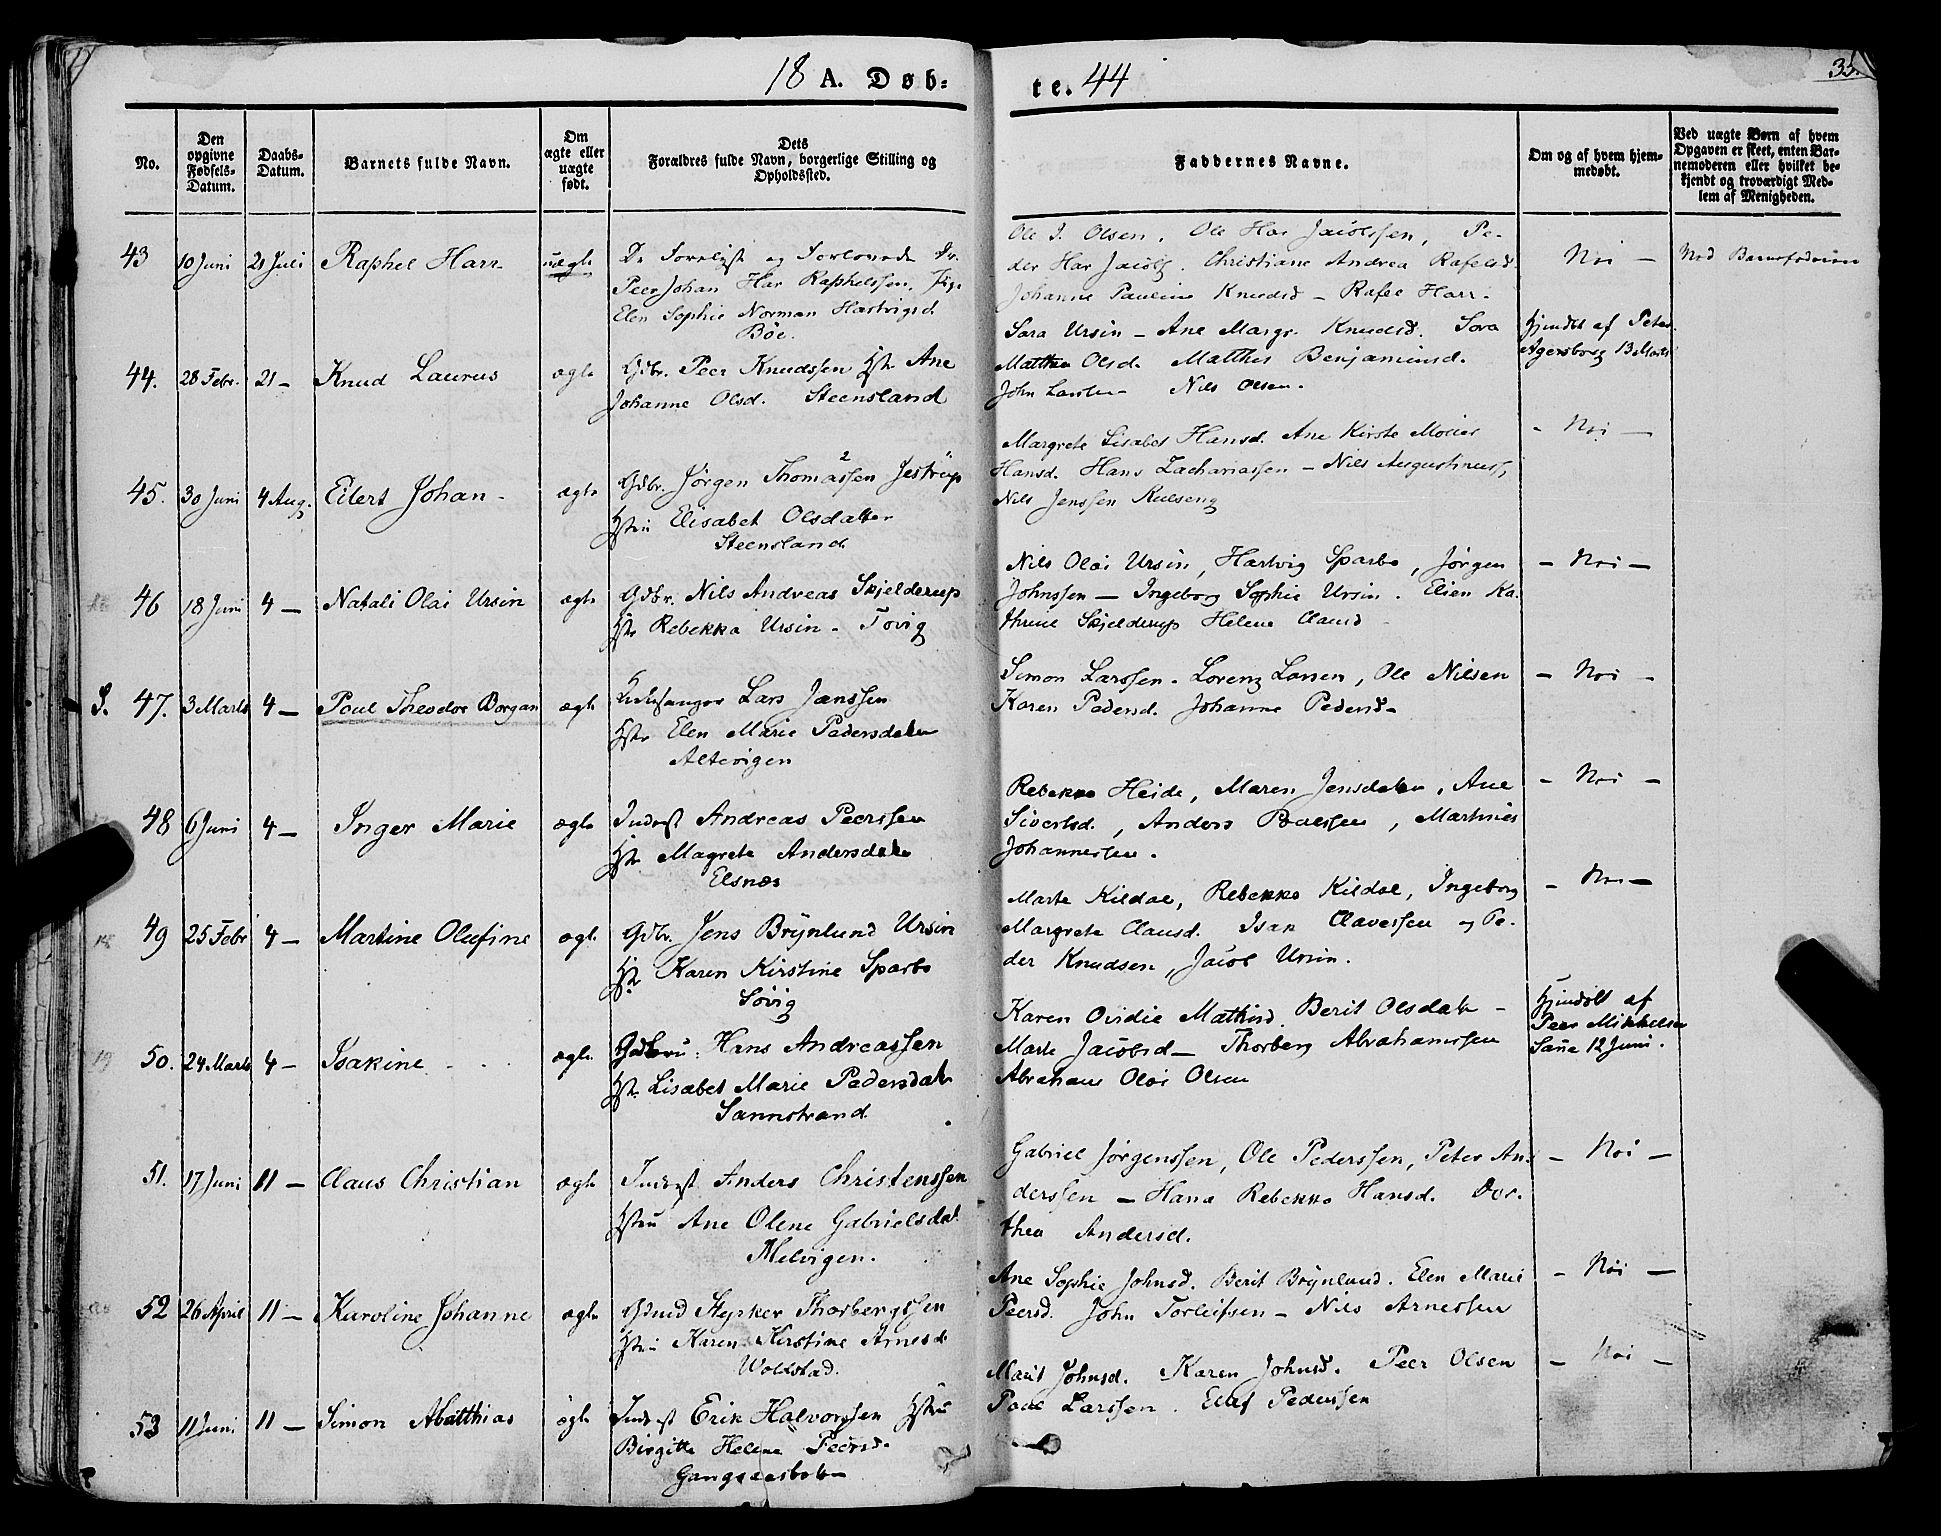 18 A. Døb=
te. 44
35.
No.
Den opgivne Fødsels-Datum.
Daabs-Datum.
Barnets fulde Navn.
Om ægte eller uægte født.
Dets Forældres fulde Navn, borgerlige Stilling og Opholdssted.
Faddernes Navne.
Om og af hvem hjem-medøbt.
Ved uægte Børn af hvem Opgaven er skeet, enten Bar-nemoderen eller hvilket be-kjendt og troværdigt Med-lem af Menigheden.
43 10 Juni 21 Juli Raphel Harr uægte
Peer Johan Har Raphelssen. Pig.
Elen Sophie Norman Hartvigsd
Bøe.
Ole J. Olsen. Ole Har Jacobssen, Pe-
der Har Jacobs. Christiane Andrea Rafelsd.
Johanne Pauline Knudsd - Rafel Harr.
Nei -
44. 28 Febr. 21 - Knud Laurus ægte
Gdbr. Peer Knudssen Hst. Ane
Johanne Olsd. Steensland
Sara Ursin - Ane Margr. Knudsd. Sara
Matthea Olsd. Matthis Benjaminsd.
John Larsen Nils Olsen.
Hjemdøbt af Peter
Agersborg 13 Marts
45. 30 Juni 4 Aug. Eilert Johan - ægte
Gdbr. Jørgen Thomassen Jestrup
Hstru Elisabet Olsdatter
Steensland
Margrete Lisabet Hansd. Ane Kirste
Hansd. Hans Zachariassen - Nils Augustinuss,
Nils Jenssen
- Nei -
46 18 Juni 4 - Natali Olai Ursin ægte
Gdbr. Nils Andreas Skjelderup
Hstr Rebekka Ursin - Tovig
Nils Olai Ursin, Hartvig Sparbo, Jørgen
Johnssen - Ingeborg Sophie Ursin. Elien Ka-
thrine Skjelderup Helene Clausd -
- Nei -
S. 47. 3 Marts 4 - Poul Theodor Borgan ægte
Kirkesanger Lars Janssen
Hstr Elen Marie Pedersdatter
Altevigen
Simon Larssen. Lorenz Larsen, Ole Nilsen
Karen Pedersd. Johanne Pedersd -
- Nei -
48 6 Juni 4 - Inger Marie ægte
Inderst Andreas Peerssen
Hstr Magrete Andersdatter
Elsnæs
Rebekka Heide, Maren Jensdatter, Ane
Sivertsd., Anders Poelssen, Martines
Johannessen.
- Nei -
49 25 Febr 4 - Martine Olufine ægte
Gdbr. Jens Brynlund Ursin
Hst. Karen Kirstine Sparbo
Søvig
Marte Kildal, Rebekka Kildal, Ingeborg
Margrete Clausd. Isak Clavessen og Pe-
der Knudsen, Jacob Ursin.
- Nei -
19 50. 24 Marts 4 - Isakine ægte
Hans Andreassen
Hstr. Lisabet Marie Pedersdatter
Sannstrand
Karen Ovidie Mathisd. Berit Olsdatr -
Marte Jacobsd - Thorberg Abrahamssen
Abraham Olai Olsen
Hjemdøbt af
Peer Mikkelsen
12 Juni.
51. 17 Juni 11 - Claus Christian ægte
Inderst Anders Christenssen
Hstru Ane Olene Gabrielsdat.
Melvigen.
Gabriel Jørgenssen, Ole Pederssen, Peter An-
derssen - Hana Rebekka Hansd. Dor-
thea Andersd.
- Nei -
52 26 April 11 - Karoline Johanne ægte
Gdmd Thorbergssen
Hstru Karen Kirstine Arnesd.
Woldstad.
Ane Sophie Johnsd. Berit Brynlund. Elen Marie
Peersd. John Torleifsen - Nils Arnessen
- Nei -
53 11 Juni 11 - Simon Matthias ægte
Inderst Erik Halvorssen Hstru
Birgitte Helene Peersd.
Marit Johnsd. Karen Johnsd. Peer Olsen
Poul Larssen. Pederssen
- Nei -